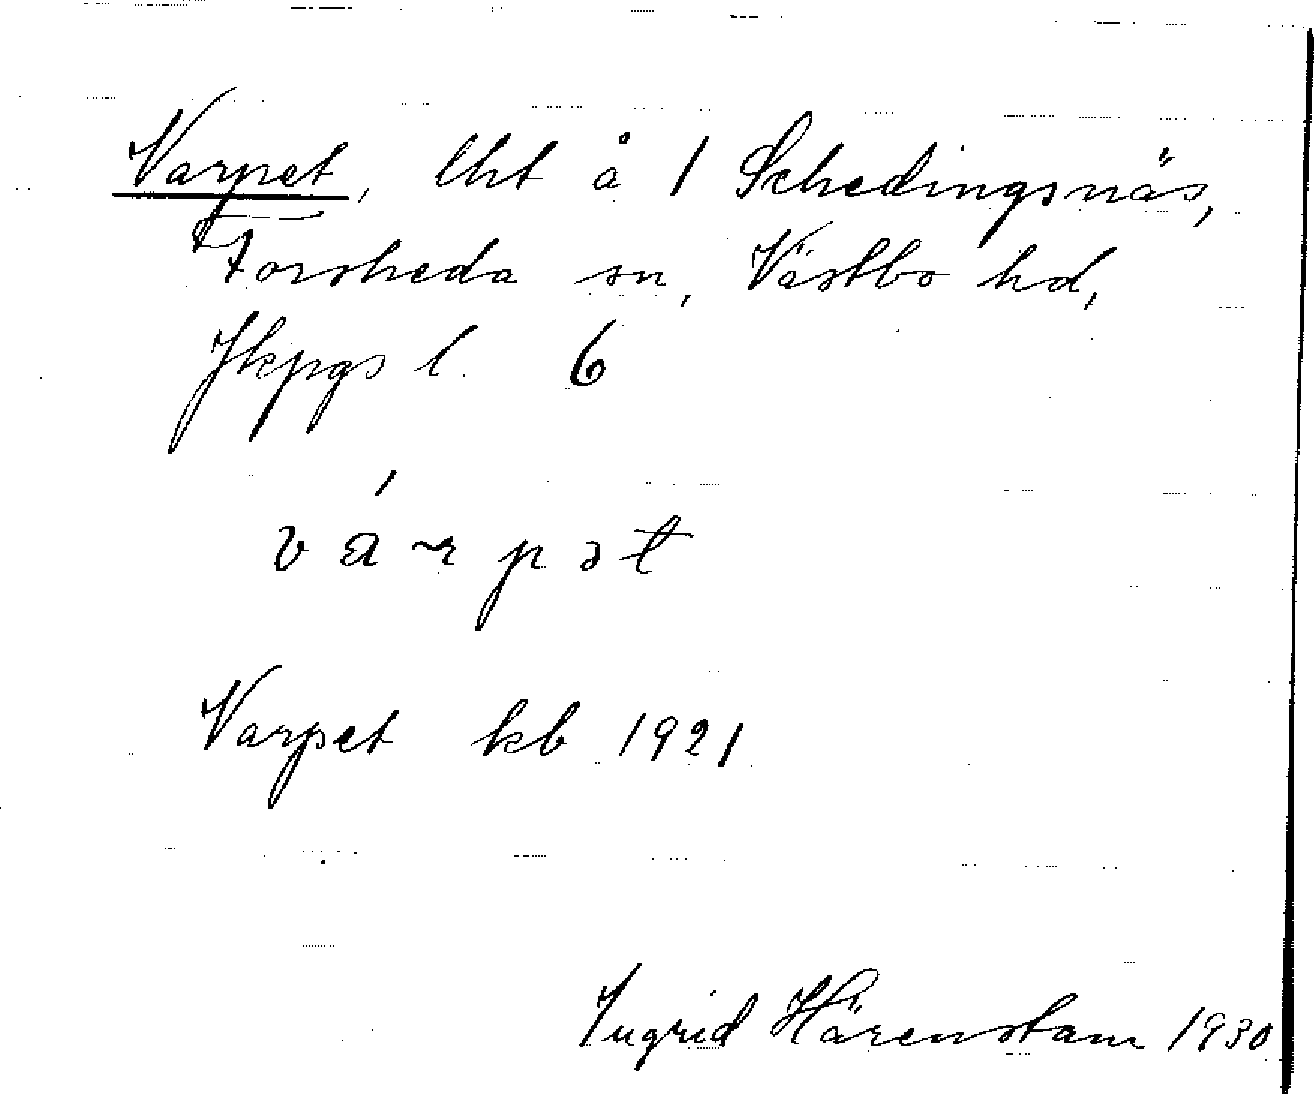 Varpet, lht å 1 Schedingsnäs,
Forsheda sn, Västbo hd,
Jkpgs l. 6
várpət
Varpet kb 1921
Ingrid Härenstam 1930